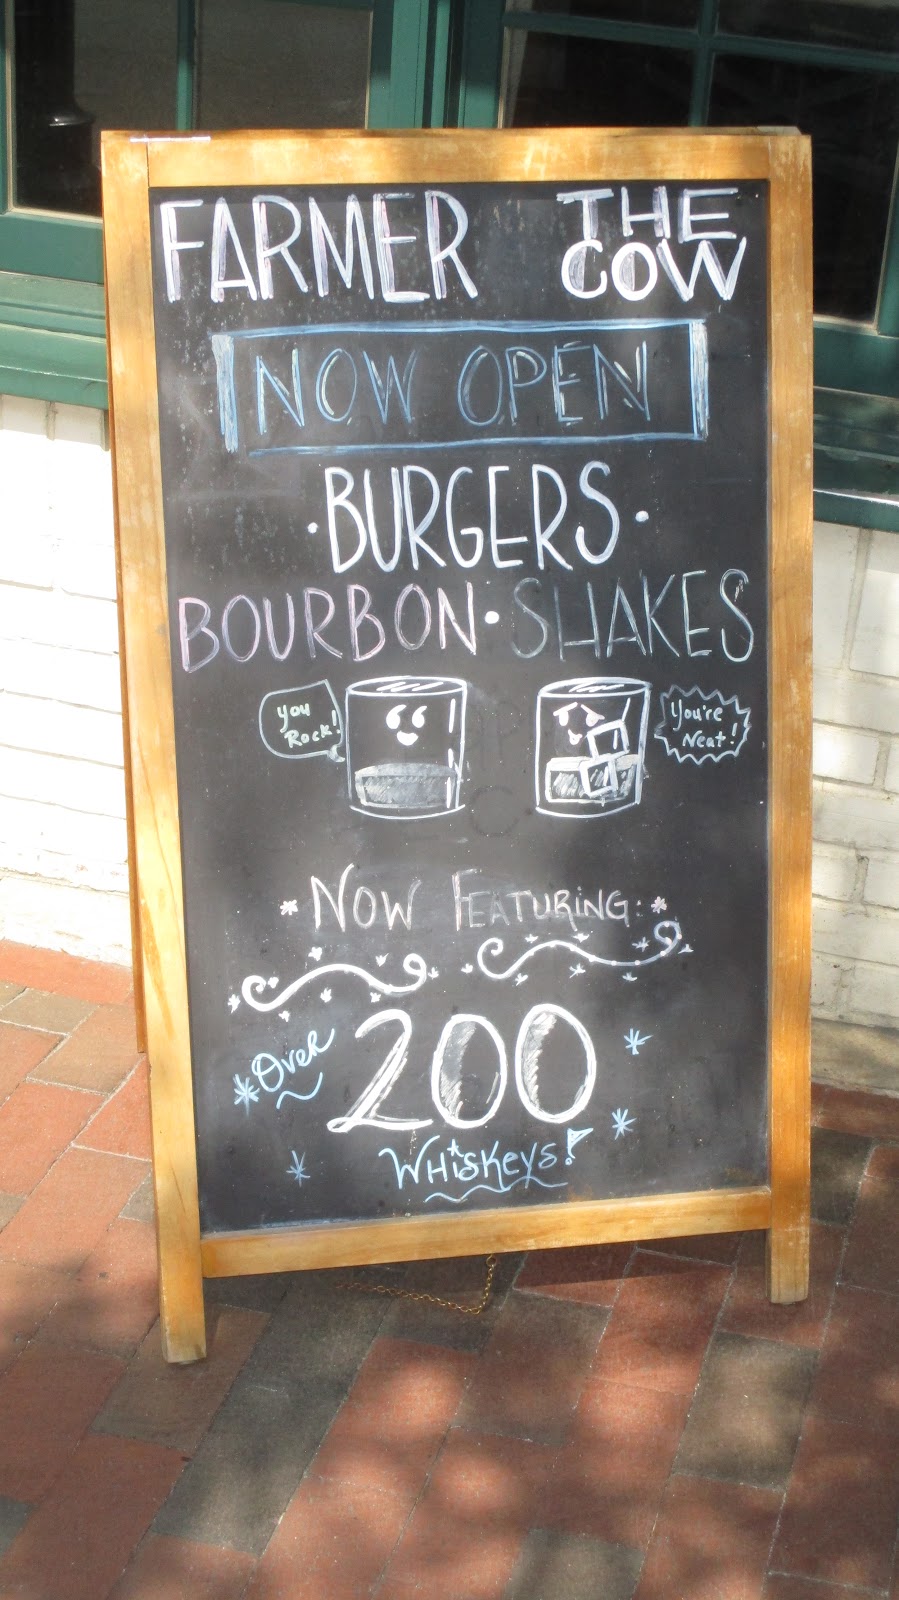 FARMER THE COW
NOW OPEN
·BURGERS·
BOURBON·SHAKES
You Rock!
You're Neat!
NOW FEATURING:
Over
200
WHiSKeys!